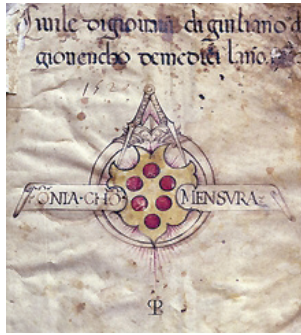 Civile di giovanni di giuliano d
giovencho de medici lano.
152
PONIA·CHO MENSVRA